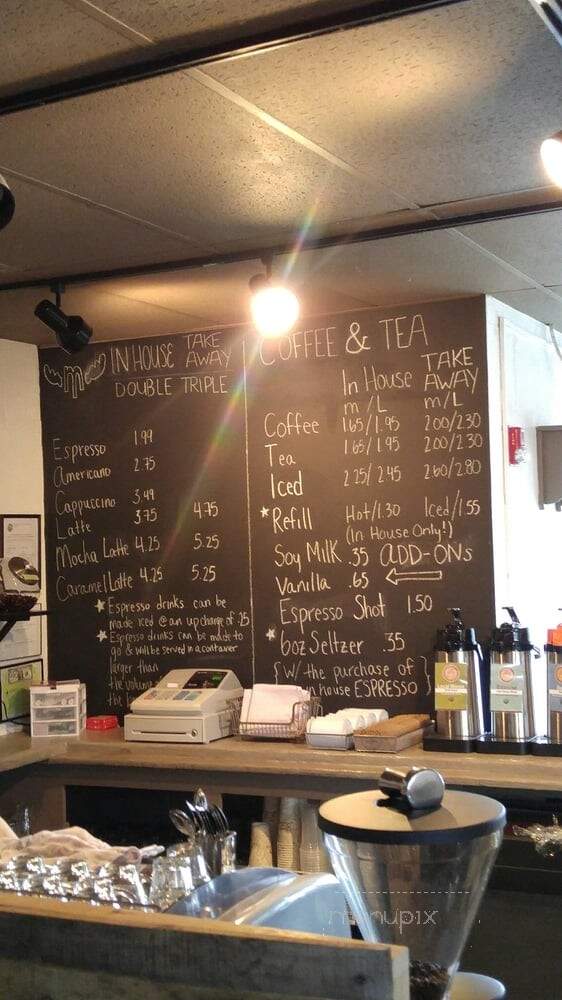 IN HOUSE TAKE AWAY
DOUBLE TRIPLE
Espresso 1.99
Americano 2.75
Cappuccino 3.49
Latte 3.75 4.75
Mocha Latte 4.25 5.25
Caramel Latte 4.25 5.25
★ Espresso drinks can be
made iced @ an up charge of .25
★ Espresso drinks can be made to
go & will be served in a container
larger than
the volume
the
COFFEE & TEA
In House TAKE AWAY
m/L m/L
Coffee 1.65/1.95 2.00/2.30
Tea 1.65/1.95 2.00/2.30
Iced 2.25/2.45 2.60/2.80
★ Refill Hot/1.30 Iced/1.55
(In House Only!)
Soy Milk .35 ADD-ONs
Vanilla .65
Espresso Shot 1.50
★ 6oz Seltzer .35
{W/ the purchase of
in house ESPRESSO}
menupix